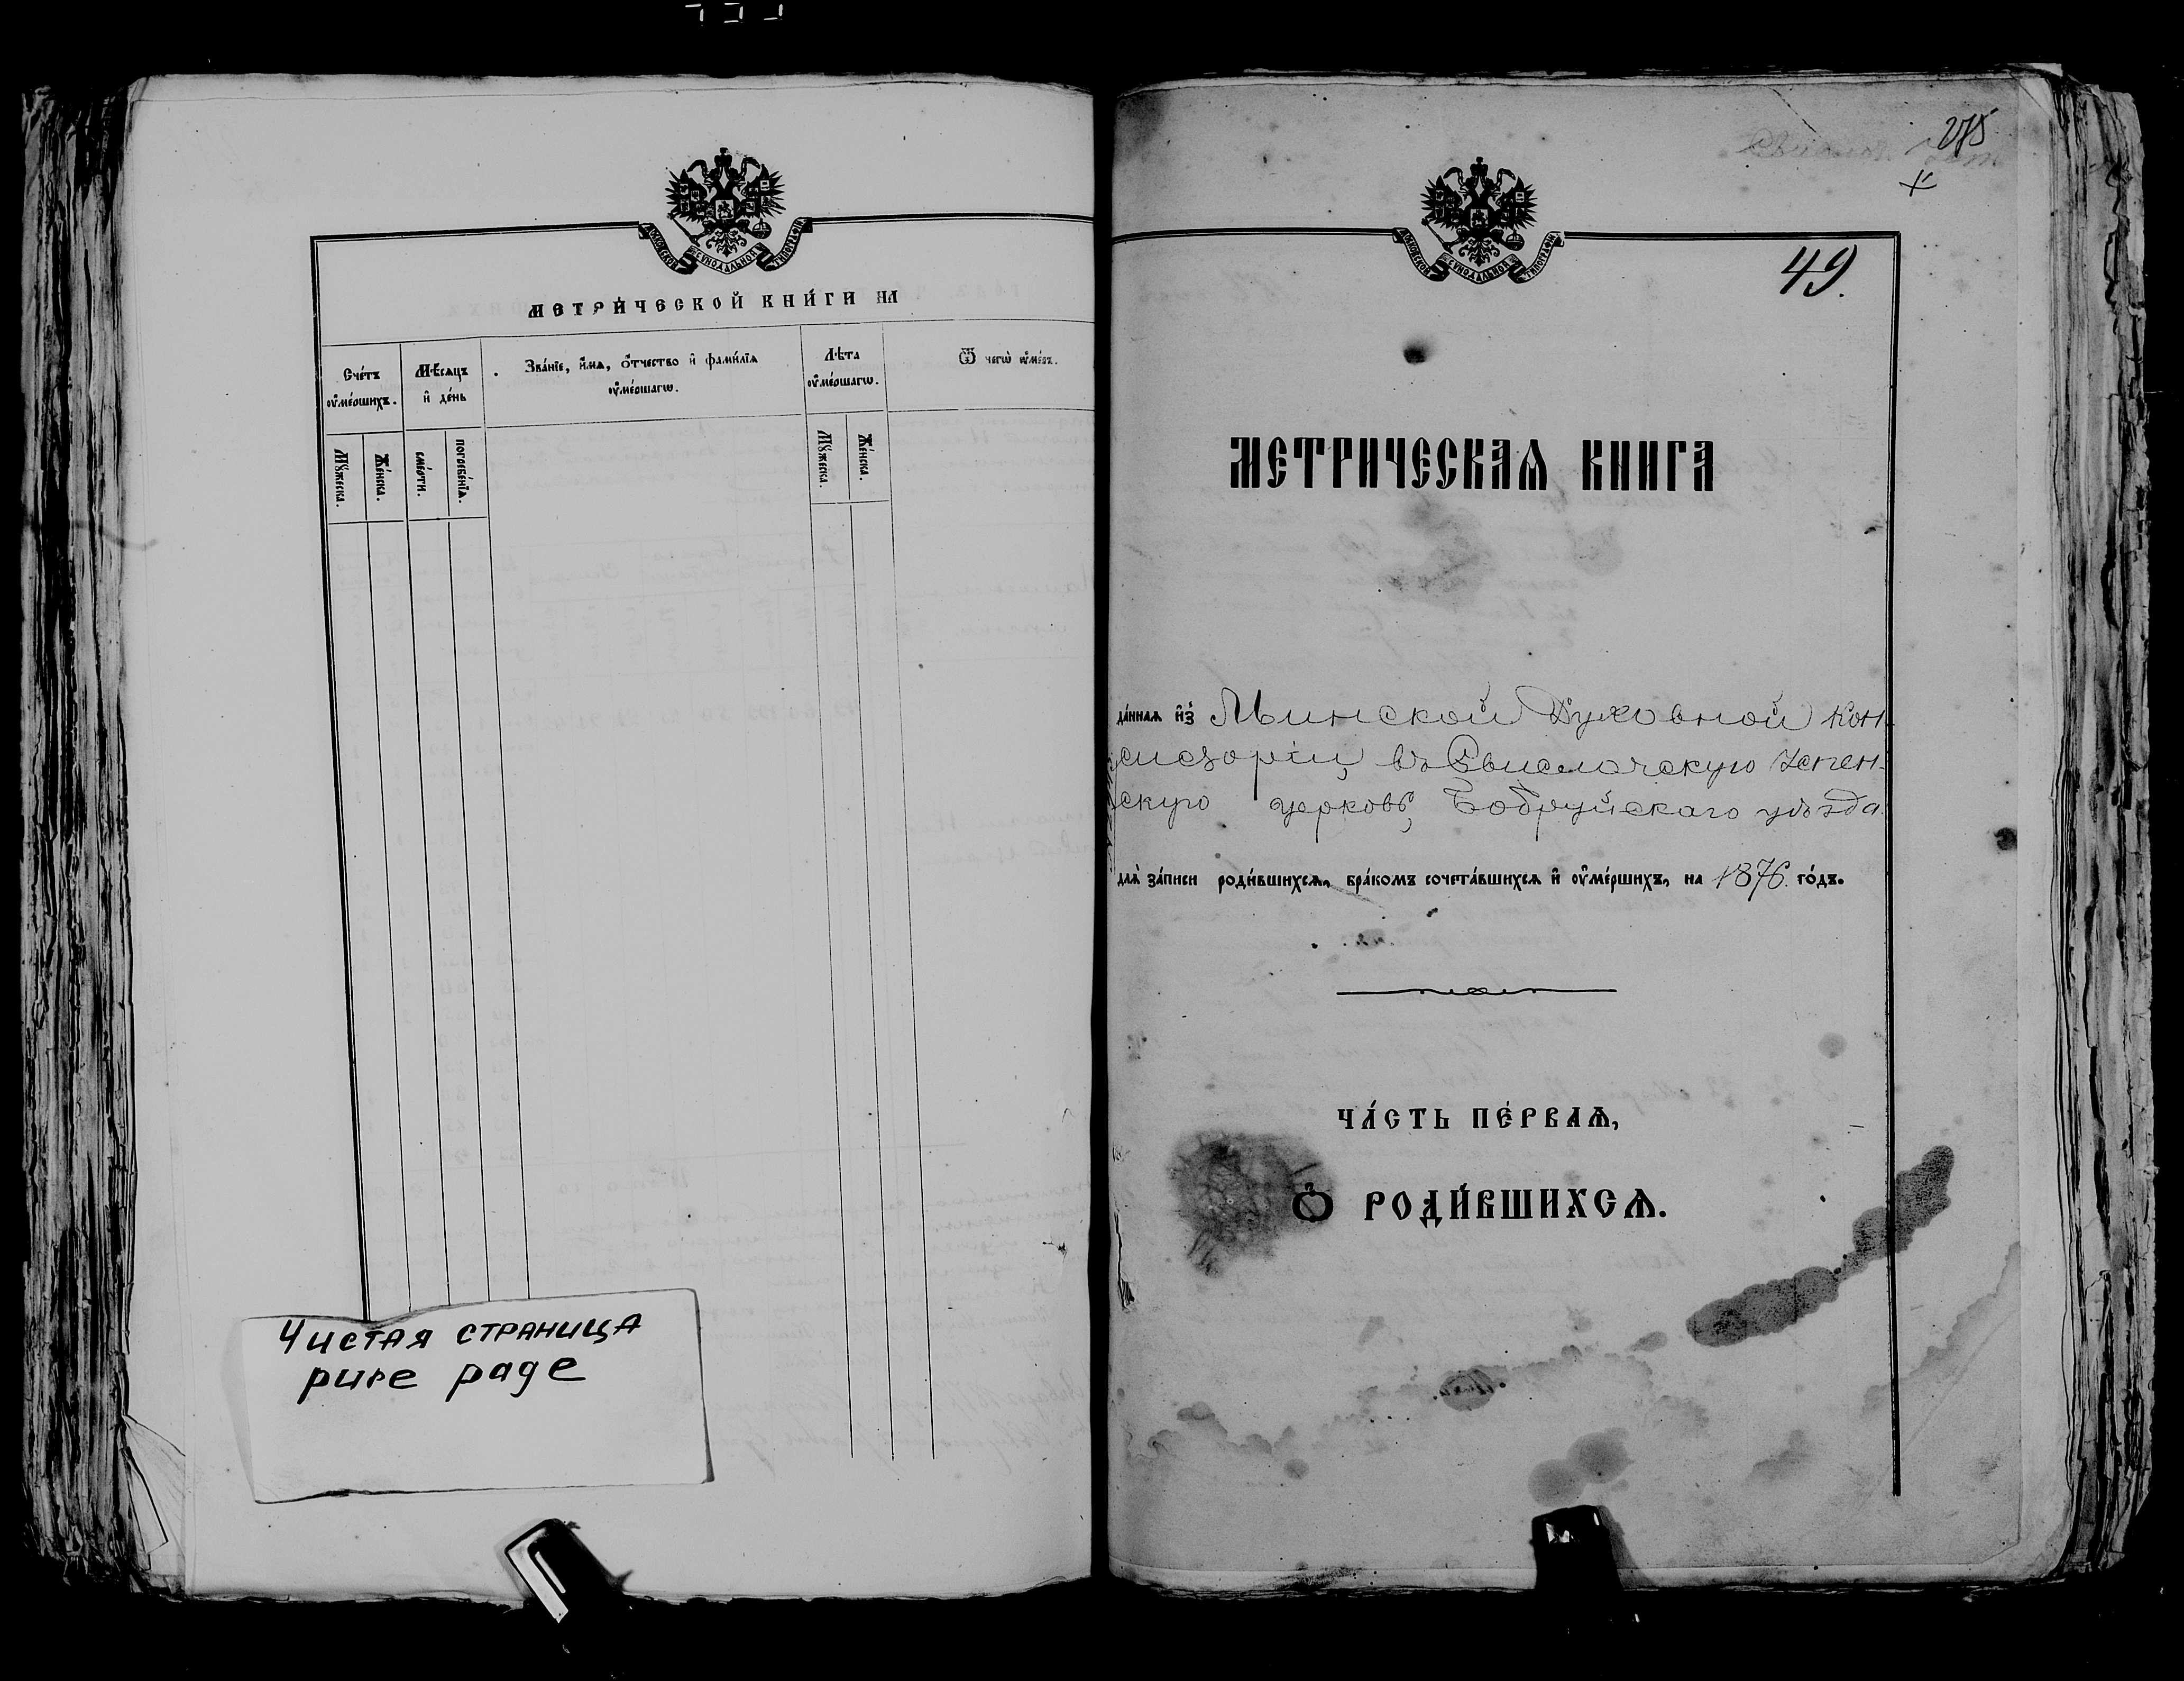 МОСКОВСКОЙ СѴНОДАЛЬНОЙ ТИПОГРАФІИ
метри́ческой кни́ги на
Сче́тъ оу҆ме́ршихъ.
Мѣ́сяцъ и҆ де́нь
Зва́нїе, и҆́мѧ, о҆́тчество и҆ фами́лїѧ оу҆ме́ршагѡ.
Лѣ́та оу҆ме́ршагѡ.
Ѿ чегѡ̀ оу҆́меръ.
Мꙋ́жеска.
Же́нска.
сме́рти.
погребе́нїѧ.
Мꙋ́жеска.
Же́нска.
Чистая страница
pure page
275
МОСКОВСКОЙ СѴНОДАЛЬНОЙ ТИПОГРАФІИ
49.
МЕТРИЧЕСКАѦ КНИГА
да́ннаѧ и҆з̾ Минской Духовной Кон-
систоріи, въ Свислочскую Успен-
скую церковь, Бобруйскаго уѣзда
длѧ̀ за́писи роди́вшихсѧ, бра́комъ сочета́вшихсѧ и҆ оу҆ме́ршихъ, на 1876. го́дъ.
ЧА́СТЬ ПЕ́РВАѦ,
Ѽ РОДИ́ВШИХСѦ.